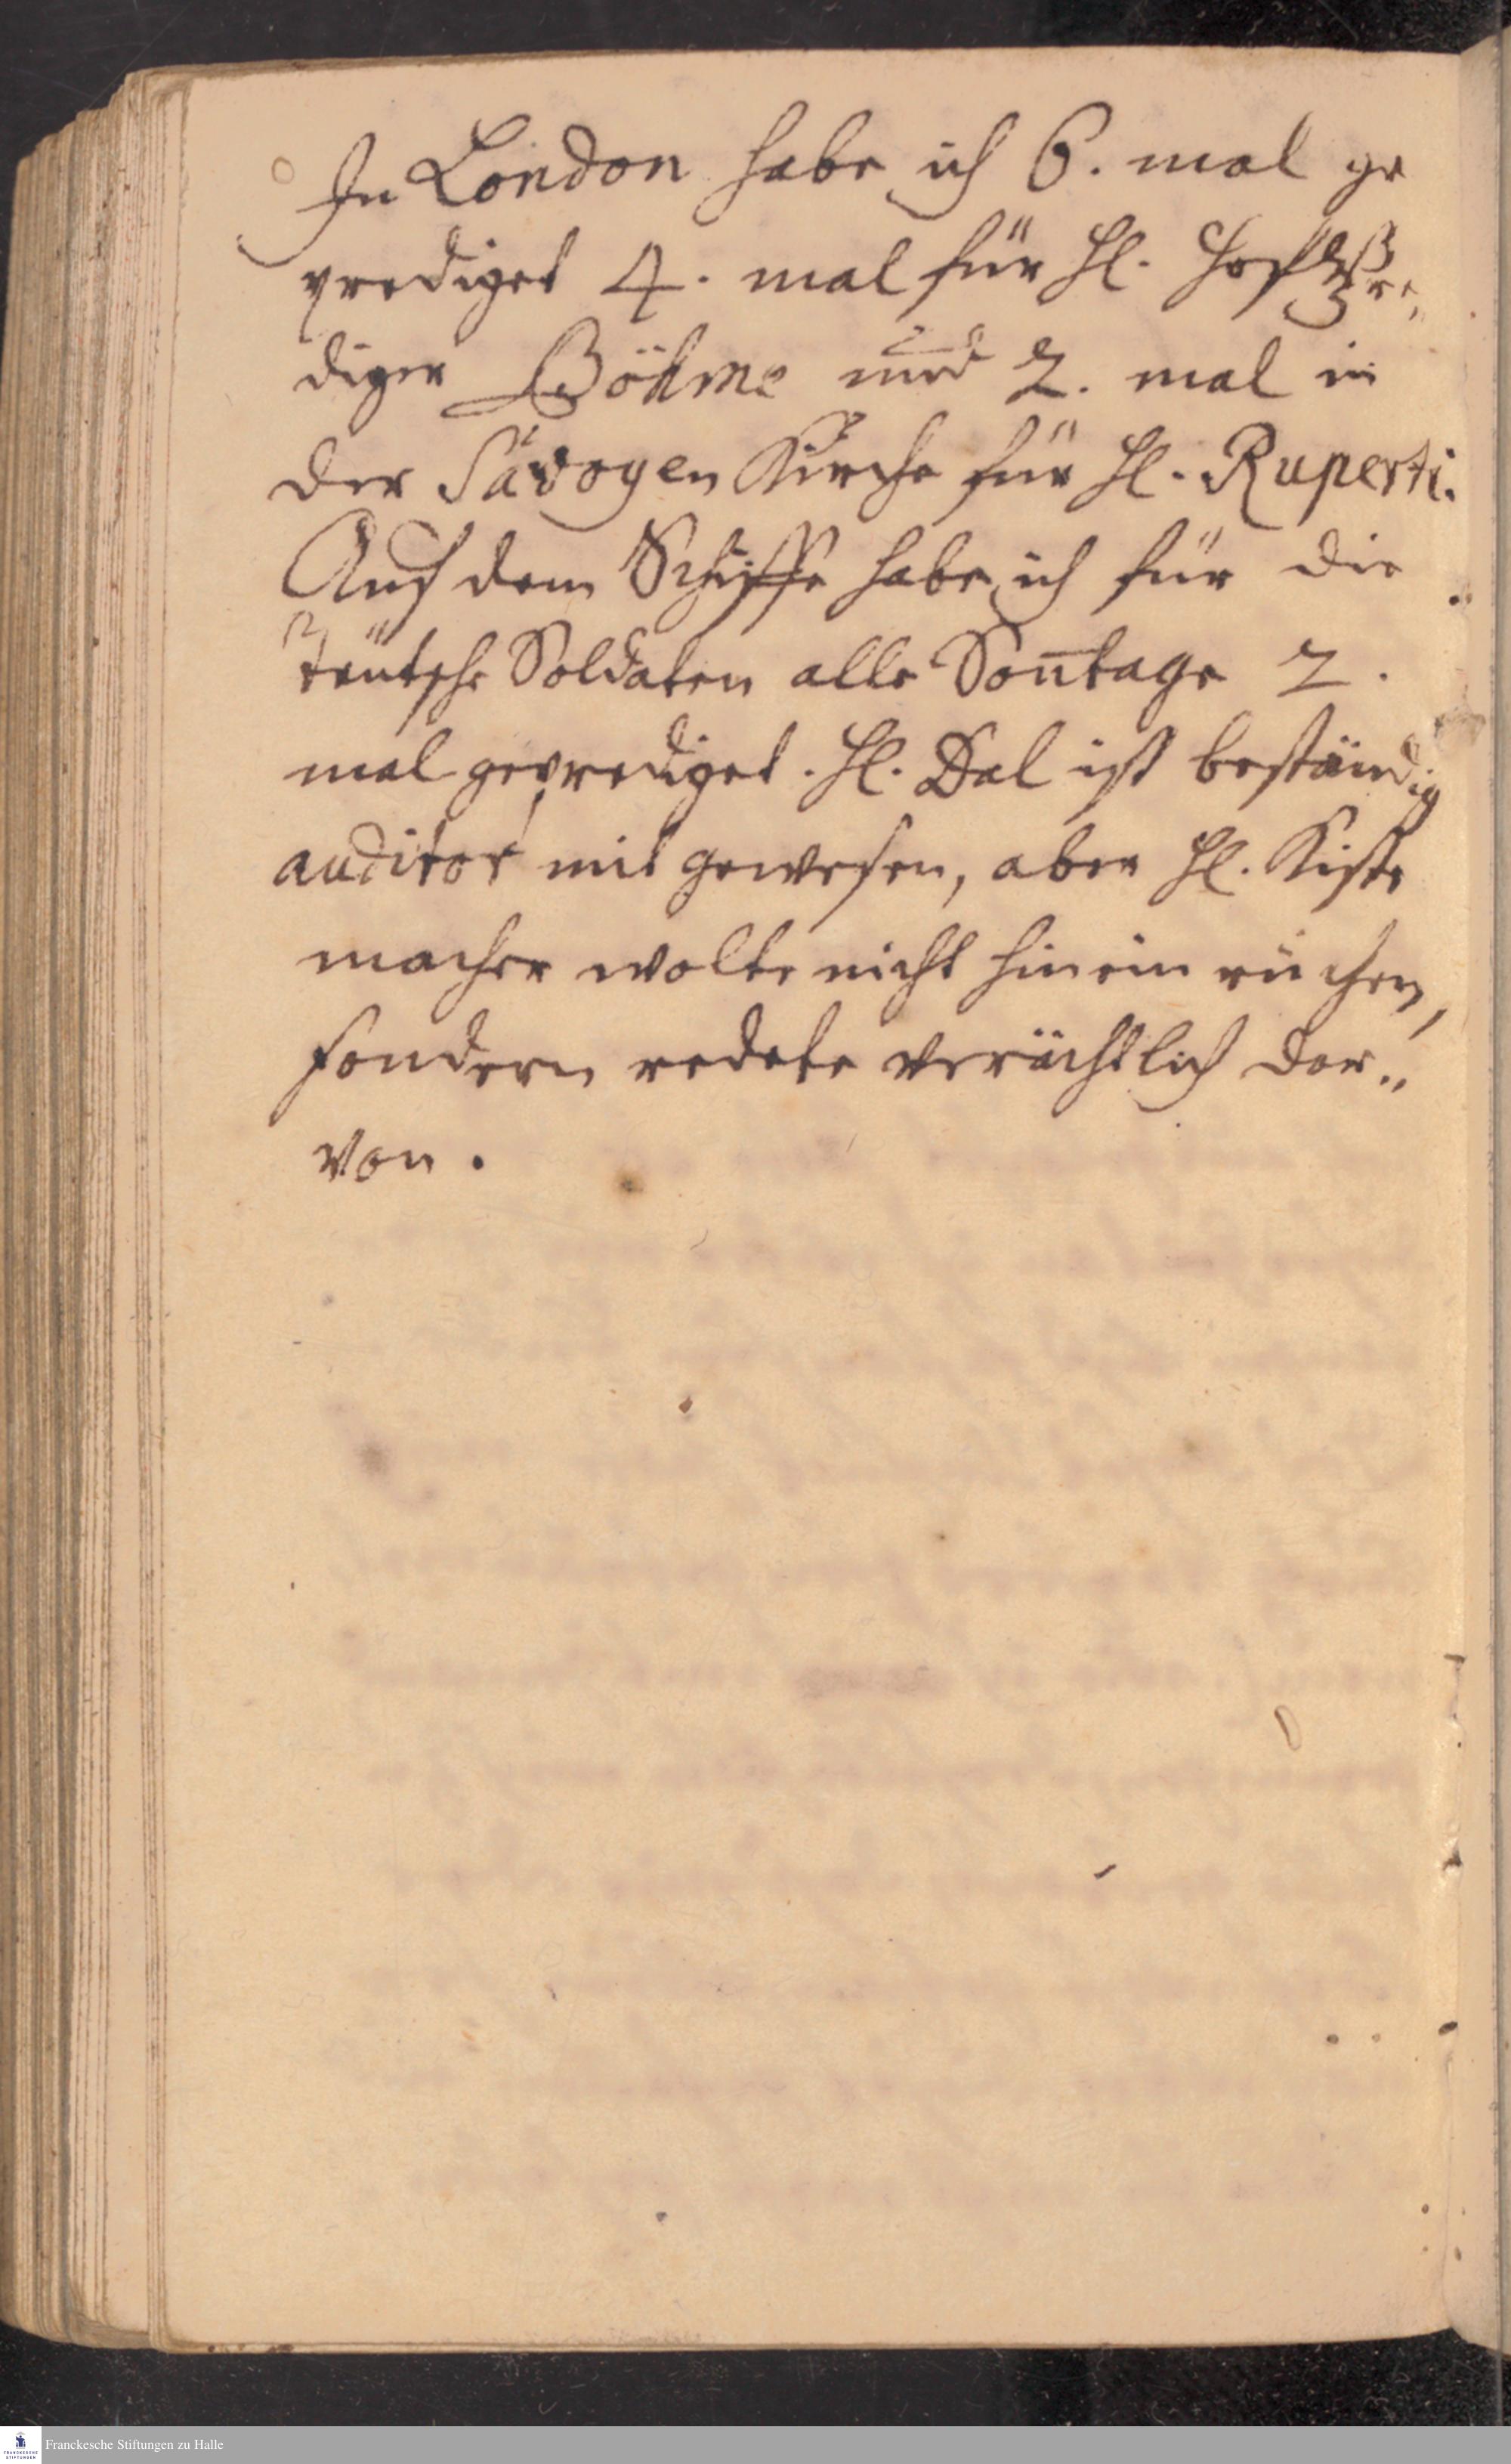 In London habe ich 6. mal ge
prediget 4. mal für H. Hoff Pre„
diger Böhme und 2. mal in
der Savoyen Kirche für H. Ruperti.
Auf dem Schiffe habe ich für die
teütsche Soldaten alle Son̄tage 2.
mal geprediget. H. Dal ist beständig
auditor mit gewesen, aber H. Kiste
macher wolte nicht hinein
sondern redete verächtlich dar„
von.
Franckesche Stiftungen zu Halle